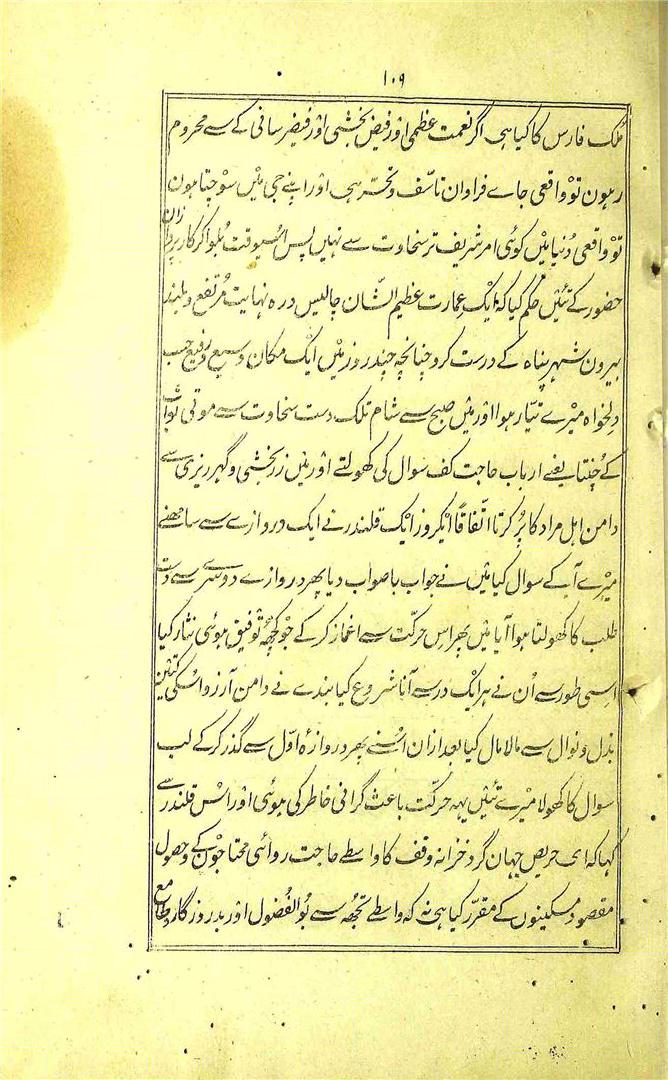 ۱۰۹
ملک فارس کا کیا ہی اگر نعمت عظمیٰ اور فیض بخشی اور فیض رسانی کے سے محروم
رہون تو واقعی جاے فراوان تاسّف و تحسّر ہی اور اپنے جی مین سوچتا ہون
تو واقعی دُنیا مین کوئی امر شریف تر سخاوت سے نہین پس اُسیوقت بُلوا کر کار پردازان
حضور کے تئین حکم کیا کہ ایک عمارت عظیم الشّان چالیس درہ نہایت مُرتفع و بلند
بیرون شہر پناہ کے درست کرو چنانچہ چند روز مین ایک مکان وسیع و رفیع حسب
دلخواہ میرے تیّار ہوا اور مین صبح سے شام تلک دست سخاوت سے موتی ثواب
کے چُنتا یعنے ارباب حاجت کف سوال کی کھولتے اور مین زر بخشی و گہر ریزی سے
دامن اہل مراد کا پُر کرتا اتّفاقاً ایکروز ایک قلندر نے ایک دروازے سے سامھنے
میرے آ کے سوال کیا مین نے جواب باصواب دیا پھر دروازے دوسرے سے دست
طلب کا کھولتا ہوا آیا مین پھر اس حرکت سے اغماز کر کے جو کچھ توفیق ہوئی نثار کیا
اسی طور سے اُن نے ہر ایک در سے آنا شروع کیا بندے نے دامن آرزو اُسکی کتئین
بذل و نوال سے مالا مال کیا بعد ازان اُسنے پھر دروازۂ اوّل سے گذر کر کے لب
سوال کا کھولا میرے تئین یہہ حرکت باعث گرانی خاطر کی ہوئی اور اُس قلندر سے
کہا کہ ای حریص جہان گرد خزانہ وقف کا واسطے حاجت روائی محتاجون کے و حصول
مقصود مسکینون کے مقرّر کیا ہی نہ کہ واسطے تجھہ سے بُو الفُضول اور بد روزگار و طامع